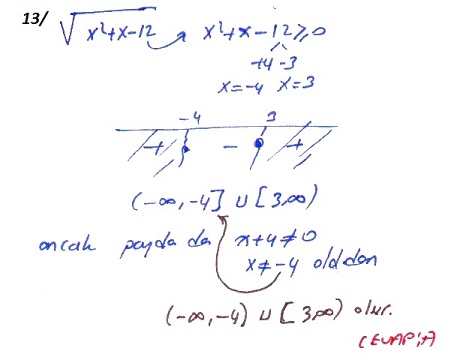 13/ √x²+x-12 x²+x-12≥0
+4 -3
x=-4 x=3
-4 3
+ - +
(-∞,-4] ∪ [3,∞)
ancak payda da x+4≠0
x≠-4 olddan
(-∞,-4) ∪ [3,∞) olur.
(CEVAP:A)